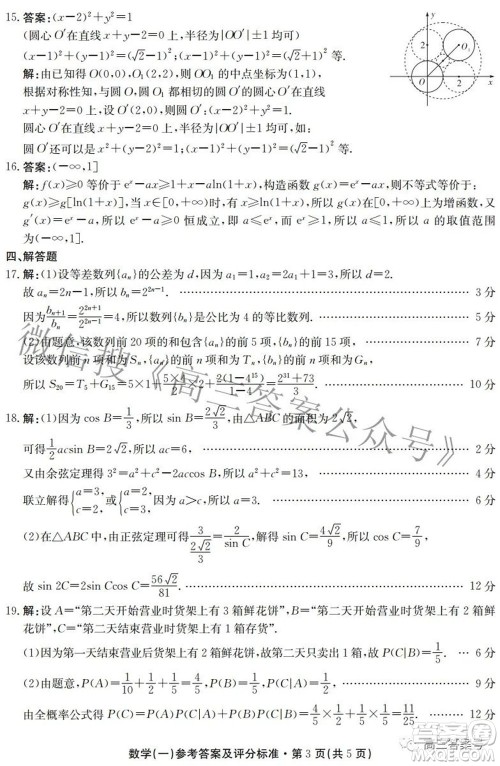 15. 答案:(x-2)²+y²=1
(圆心O′在直线x+y-2=0上,半径为|OO′|±1均可)
(x-1)²+(y-1)²=(√2-1)²,(x-1)²+(y-1)²=(√2+1)²等.
解:由已知得O(0,0),O₁(2,2),则OO₁的中点坐标为(1,1),
根据对称性知,与圆O,圆O₁都相切的圆O′的圆心O′在直线
x+y-2=0上,设O′(2,0),则圆O′:(x-2)²+y²=1.
圆心O′在直线x+y-2=0上,半径为|OO′|±1均可,如:
圆O′还可以是x²+(y-2)²=1;(x-1)²+(y-1)²=(√2-1)²等.
y
2
O₁
O
2
x
16. 答案:(-∞,1]
解:f(x)≥0等价于eˣ-ax≥1+x-aln(1+x),构造函数g(x)=eˣ-ax,则不等式等价于:
g(x)≥g[ln(1+x)],当x∈[0,+∞)时,有x≥ln(1+x),所以g(x)在[0,+∞)为增函数,又
g′(x)=eˣ-a,所以eˣ-a≥0恒成立,即a≤eˣ,而eˣ∈[1,+∞),所以a≤1,所以a的取值范围
为(-∞,1].
四、解答题
17. 解:(1)设等差数列{aₙ}的公差为d,因为a₁=1,2a₁+1=a₂=3,所以d=2.
故aₙ=2n-1,所以bₙ=2²ⁿ⁻¹. 3分
因为bₙ₊₁/bₙ=2²ⁿ⁺¹/2²ⁿ⁻¹=4,所以数列{bₙ}是公比为4的等比数列. 5分
(2)由题意,该数列前20项的和包含{aₙ}的前5项,{bₙ}的前15项. 7分
设该数列前n项和为Sₙ,{aₙ}的前n项和为Tₙ,{bₙ}的前n项和为Gₙ,
所以S₂₀=T₅+G₁₅=5×1+5×4/2×2+2(1-4¹⁵)/(1-4)=(2³¹+73)/3. 10分
18. 解:(1)因为cos B=1/3,所以sin B=2√2/3,由△ABC的面积为2√2,
可得1/2acsin B=2√2,所以ac=6, 2分
又由余弦定理得3²=a²+c²-2accos B,所以a²+c²=13, 4分
联立解得{a=3,c=2,或{a=2,c=3,因为a>c,所以a=3. 6分
(2)在△ABC中,由正弦定理可得3/(2√2/3)=2/sin C,解得sin C=4√2/9,所以cos C=7/9,
故sin 2C=2sin Ccos C=56√2/81. 12分
19. 解:设A=“第二天开始营业时货架上有3箱鲜花饼”,B=“第二天开始营业时货架上有2箱鲜
花饼”,C=“第二天结束营业时货架上有1箱存货”.
(1)因为第一天结束营业后货架上有2箱鲜花饼,故第二天只卖出1箱,故P(C|B)=1/5. 6分
(2)由题意,P(A)=1/10+1/2+1/5=4/5,P(B)=1/5,P(C|A)=1/2, 9分
由全概率公式得P(C)=P(A)P(C|A)+P(B)P(C|B)=4/5×1/2+1/5×1/5=11/25. 12分
数学(一)参考答案及评分标准·第3页(共5页)
微信搜《高三答案公众号》
高三答案号